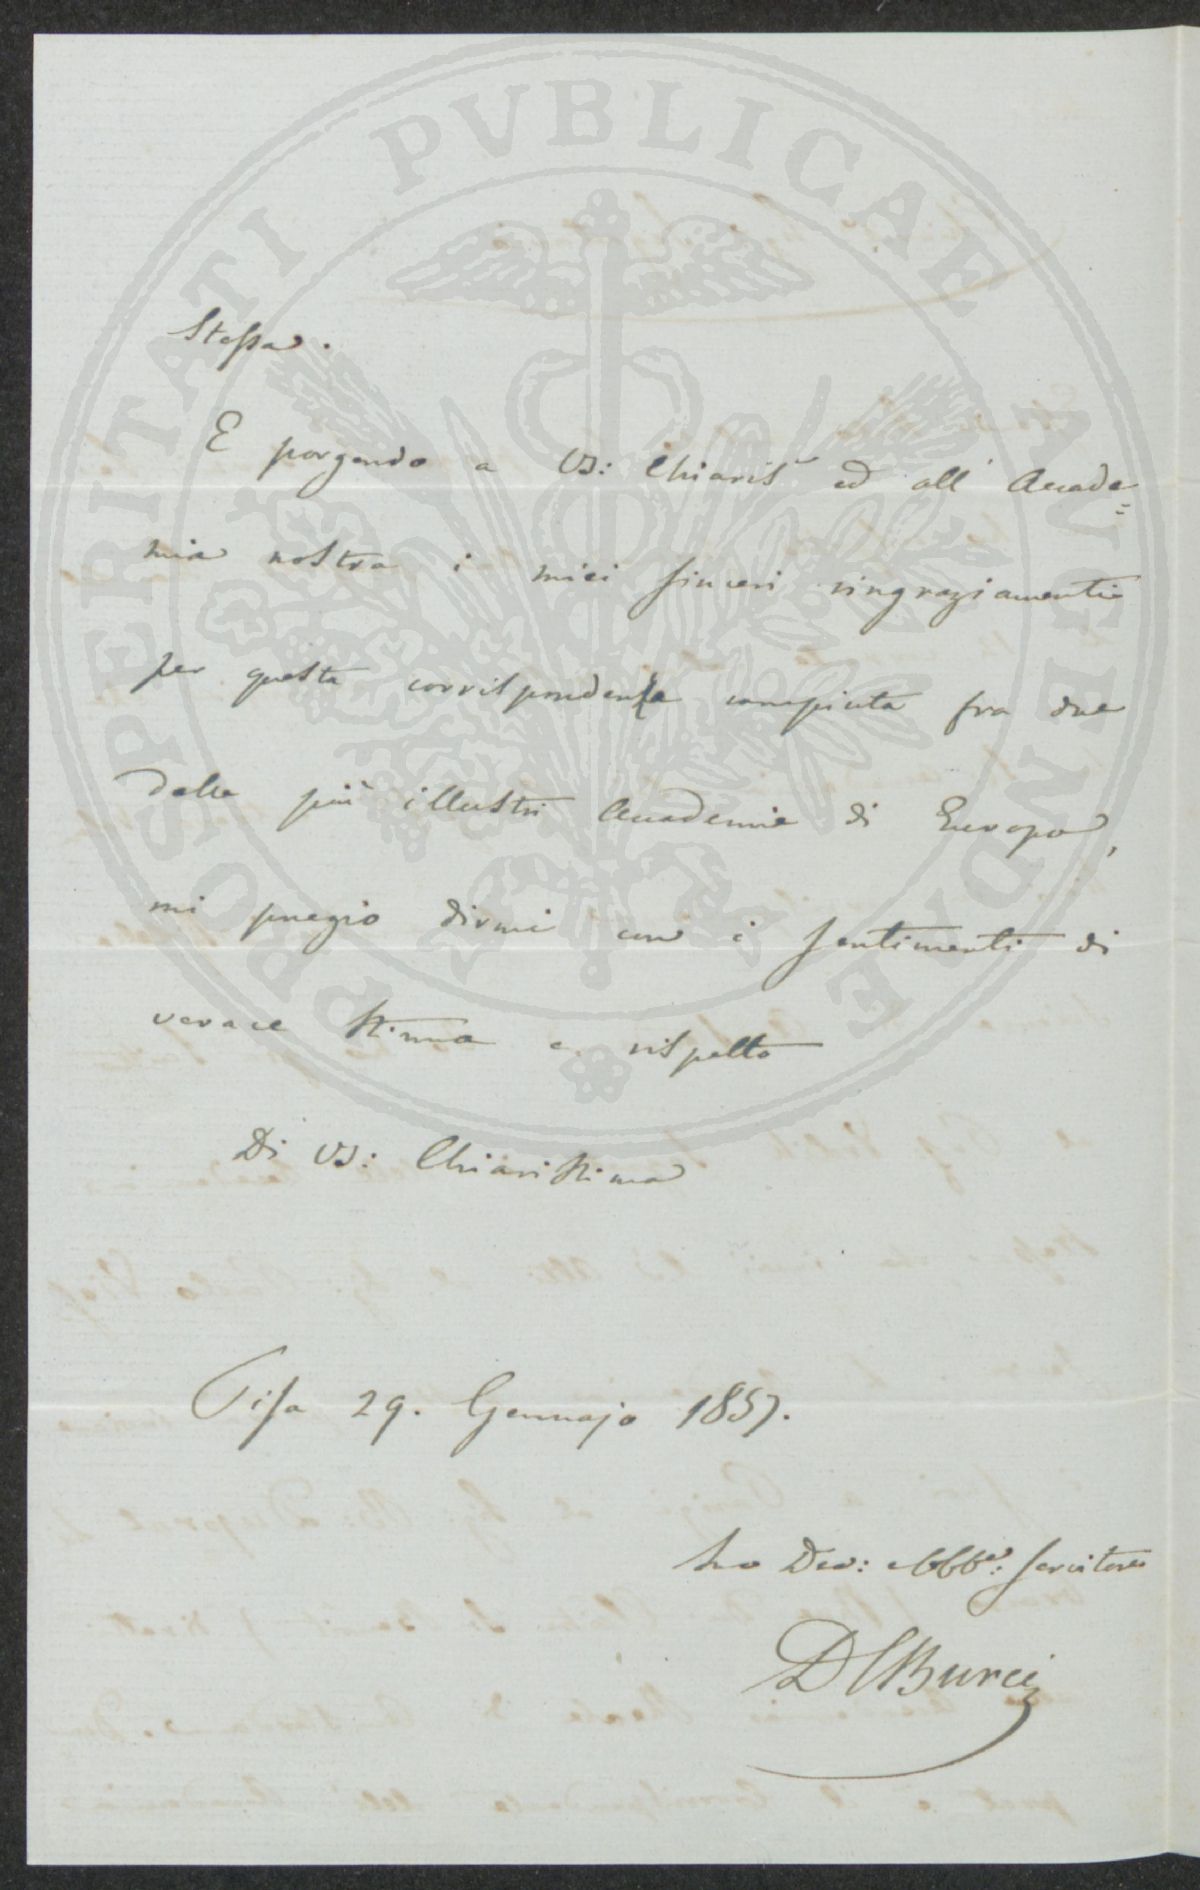 PROSPERITATI PVBLICAE AVGENDAE
Stessa.
E porgendo a VS: Chiaris.ª ed all' Accade=
mia nostra i miei sinceri ringraziamenti
per questa corrispondenza compiuta fra due
delle più illustri Accademie di Europa,
mi pregio dirmi con i sentimenti di
verace stima e rispetto
Di VS: Chiarissima
Pisa 29. Gennajo 1857.
Suo Dev: Obb.º: servitore
D C Burci